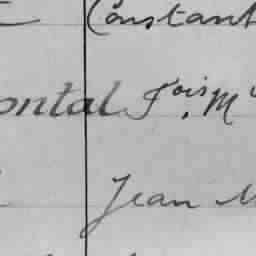 Constant
ontal Fois M
Jean M